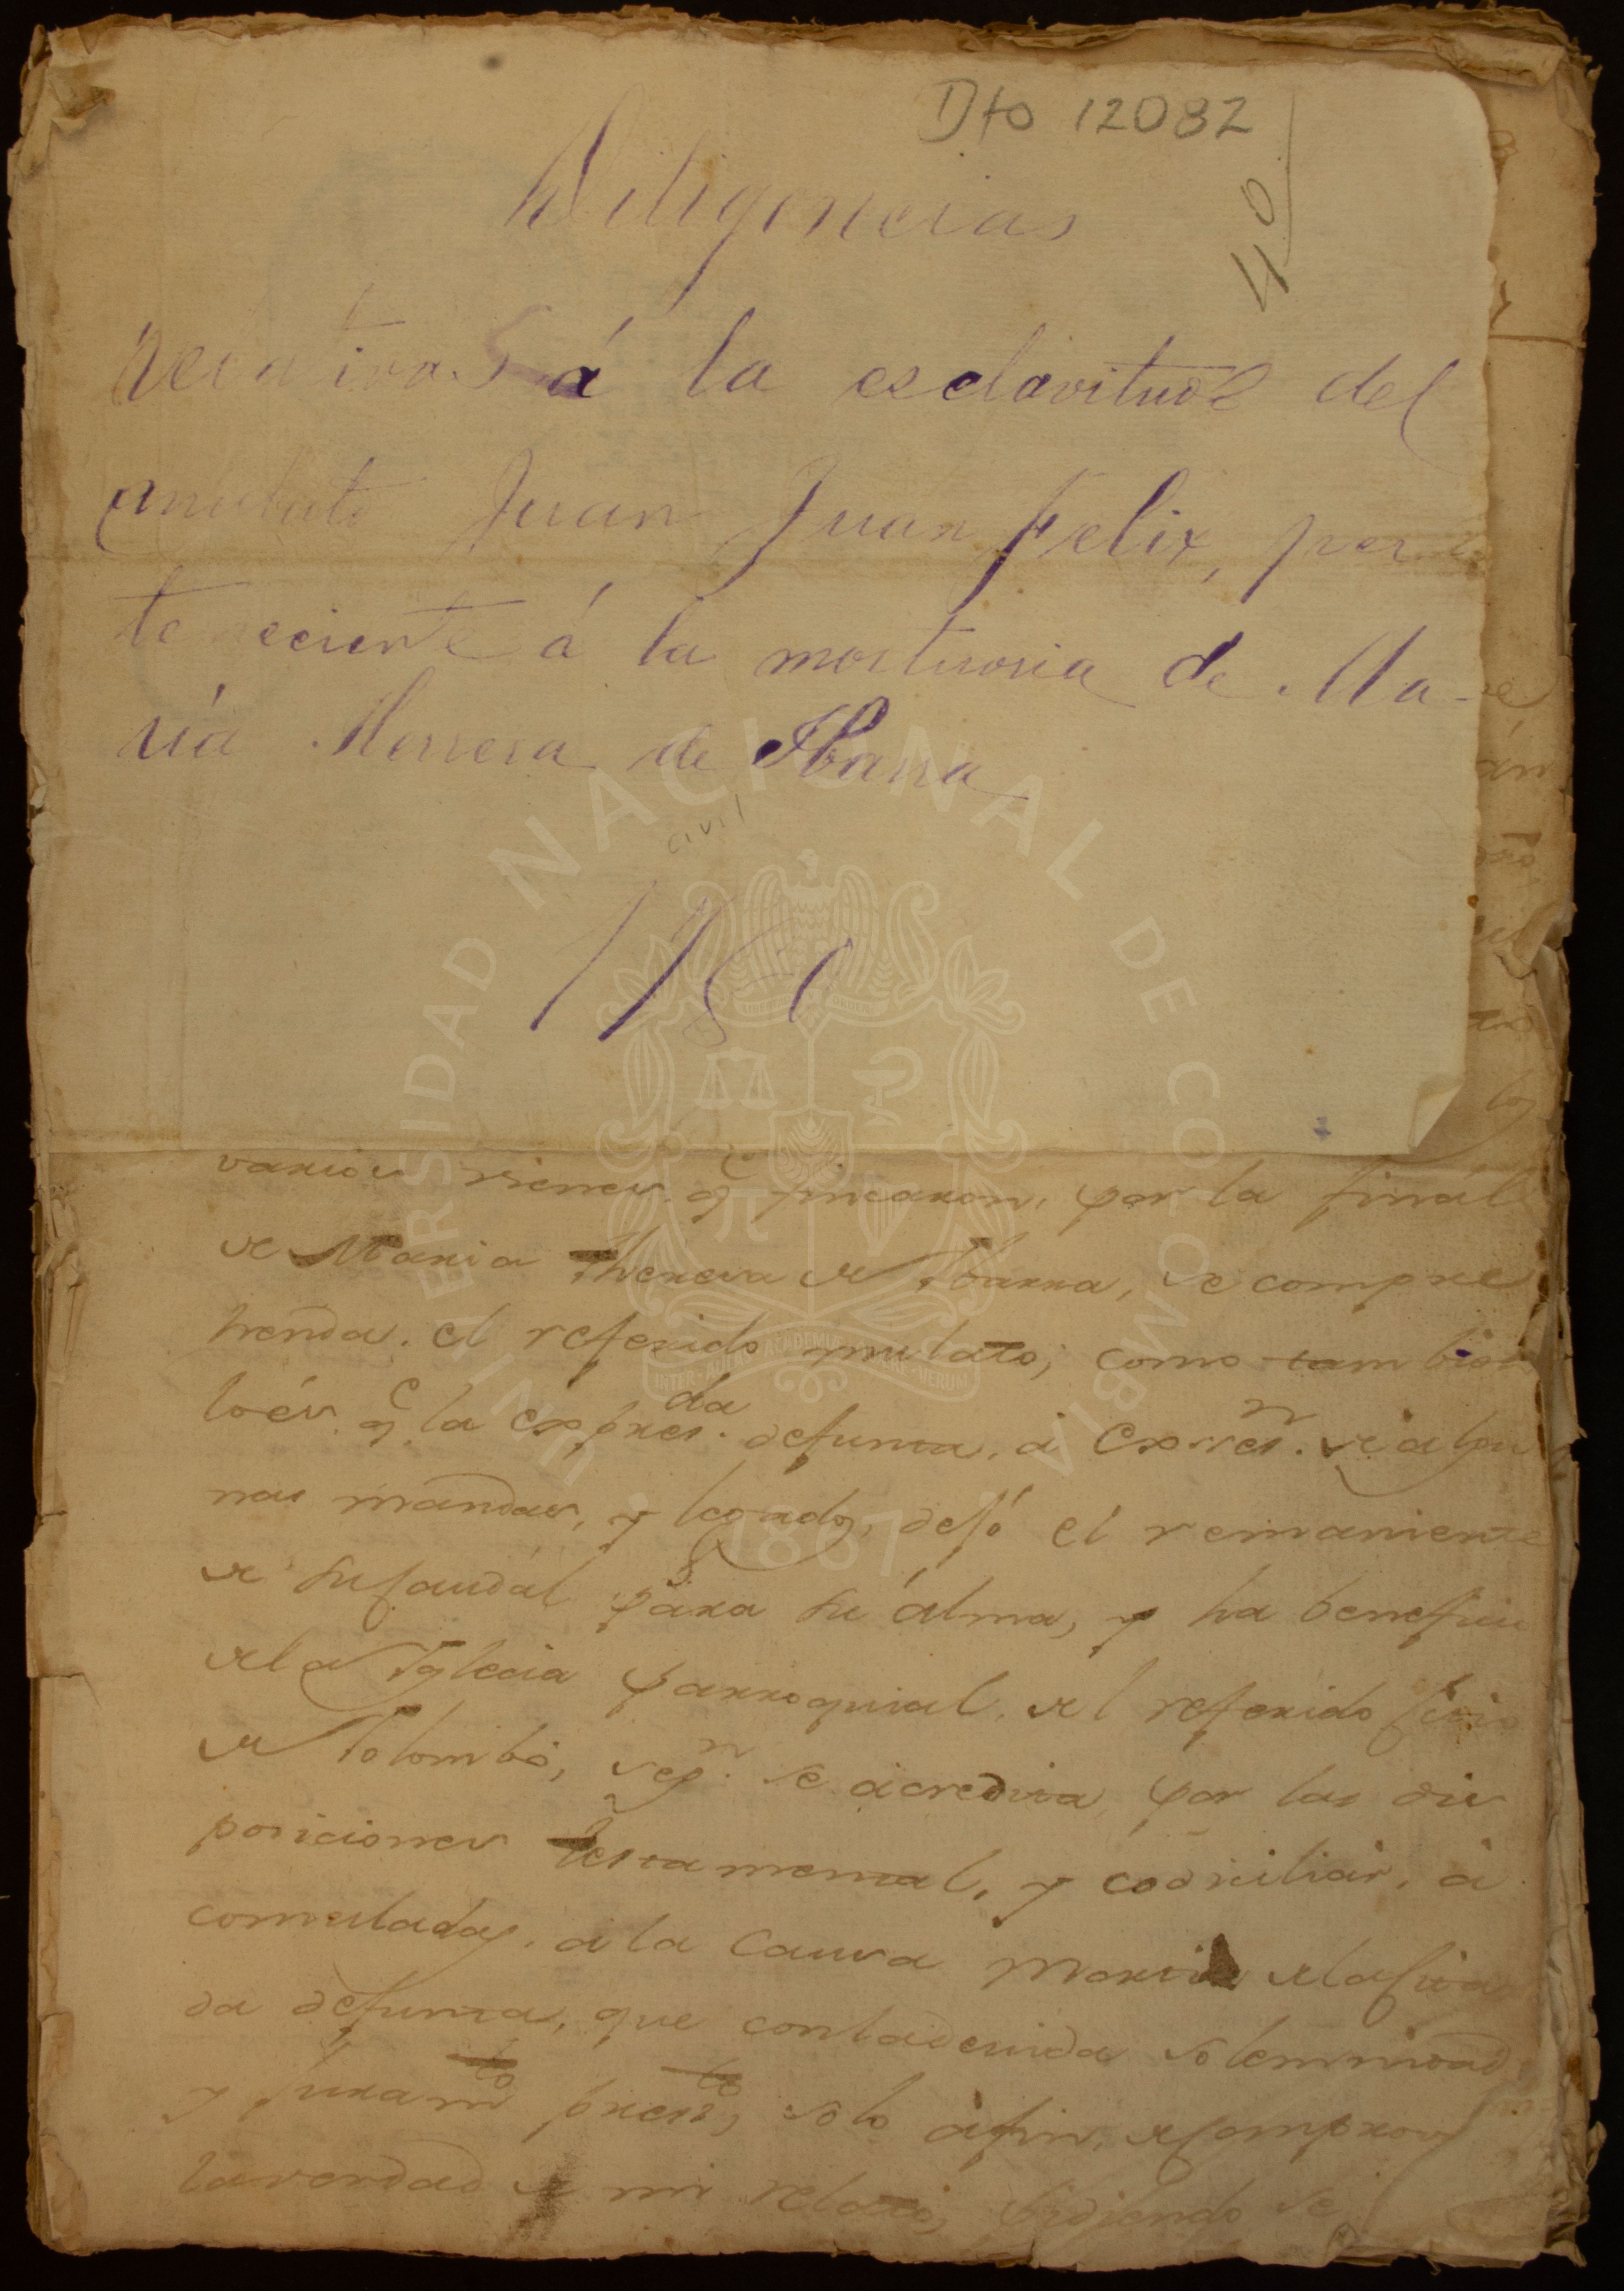 Dto 12082
40
Diligencias
relativas á la esclavitud del
mulato Juan Juan Felix, per
teneciente á la mortuoria de Ma-
ría Herrera de Ibarra
civil
1780
varios vienes q̃ fincaron, por la fin al
de Maria Theresa de Ibarra, se compre
henda, el referido mulato; como tambien
lo és q̃ la expres.da defunta, á excep.n de algu
nas mandas, y legados, dejó el remaniente
de su caudál para su álma, y ha beneficio
de la Yglecia parroquial, del referido sitio
de Yolombó, seg.n se acredita, por las dis
posiciones testamental, y codiciliár, á
comuladas, á la causa mortual de la sita
da defunta, que con la devida solemnidad
y juram.to pres.to, solo á fin, de comprovar
la verdad de mi relato, pidiendo se
UNIVERSIDAD NACIONAL DE COLOMBIA
1867